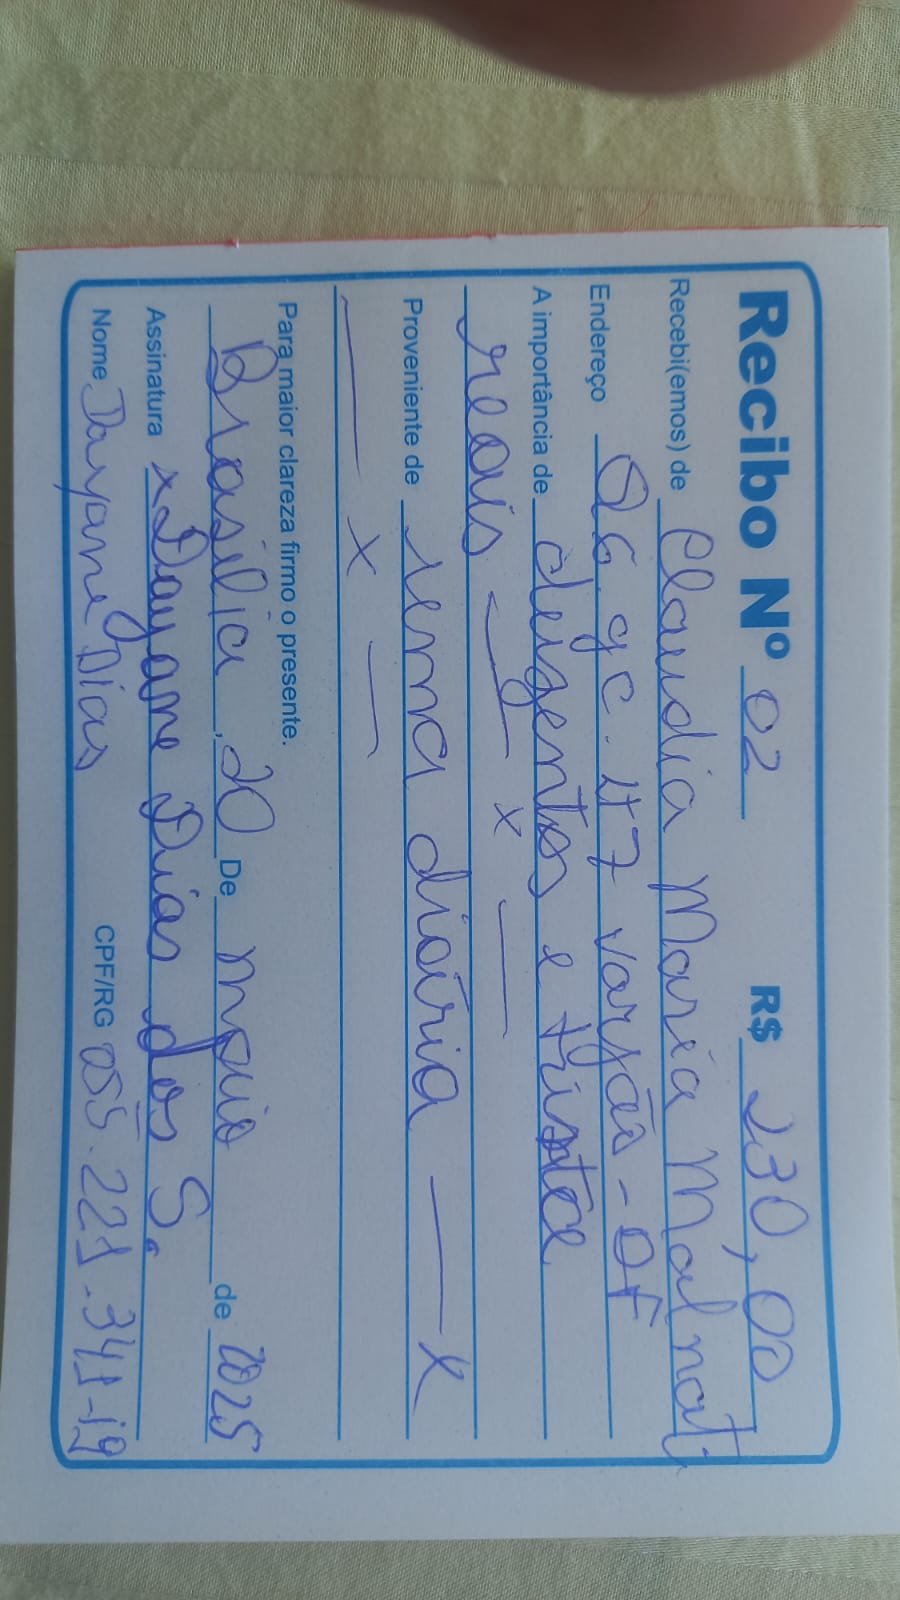 Recibo Nº 02 R$ 230,00
Recebi(emos) de Claudia Maria Malnati
Endereço Q6. gc. 47 varjão - DF
A importância de duzentos e trinta
reais — x —
Proveniente de uma diária — x
— x —
Para maior clareza firmo o presente.
Brasília, 20 De maio de 2025
Assinatura x Dayane Dias dos S.
Nome Dayane Dias CPF/RG 055.221.341-19